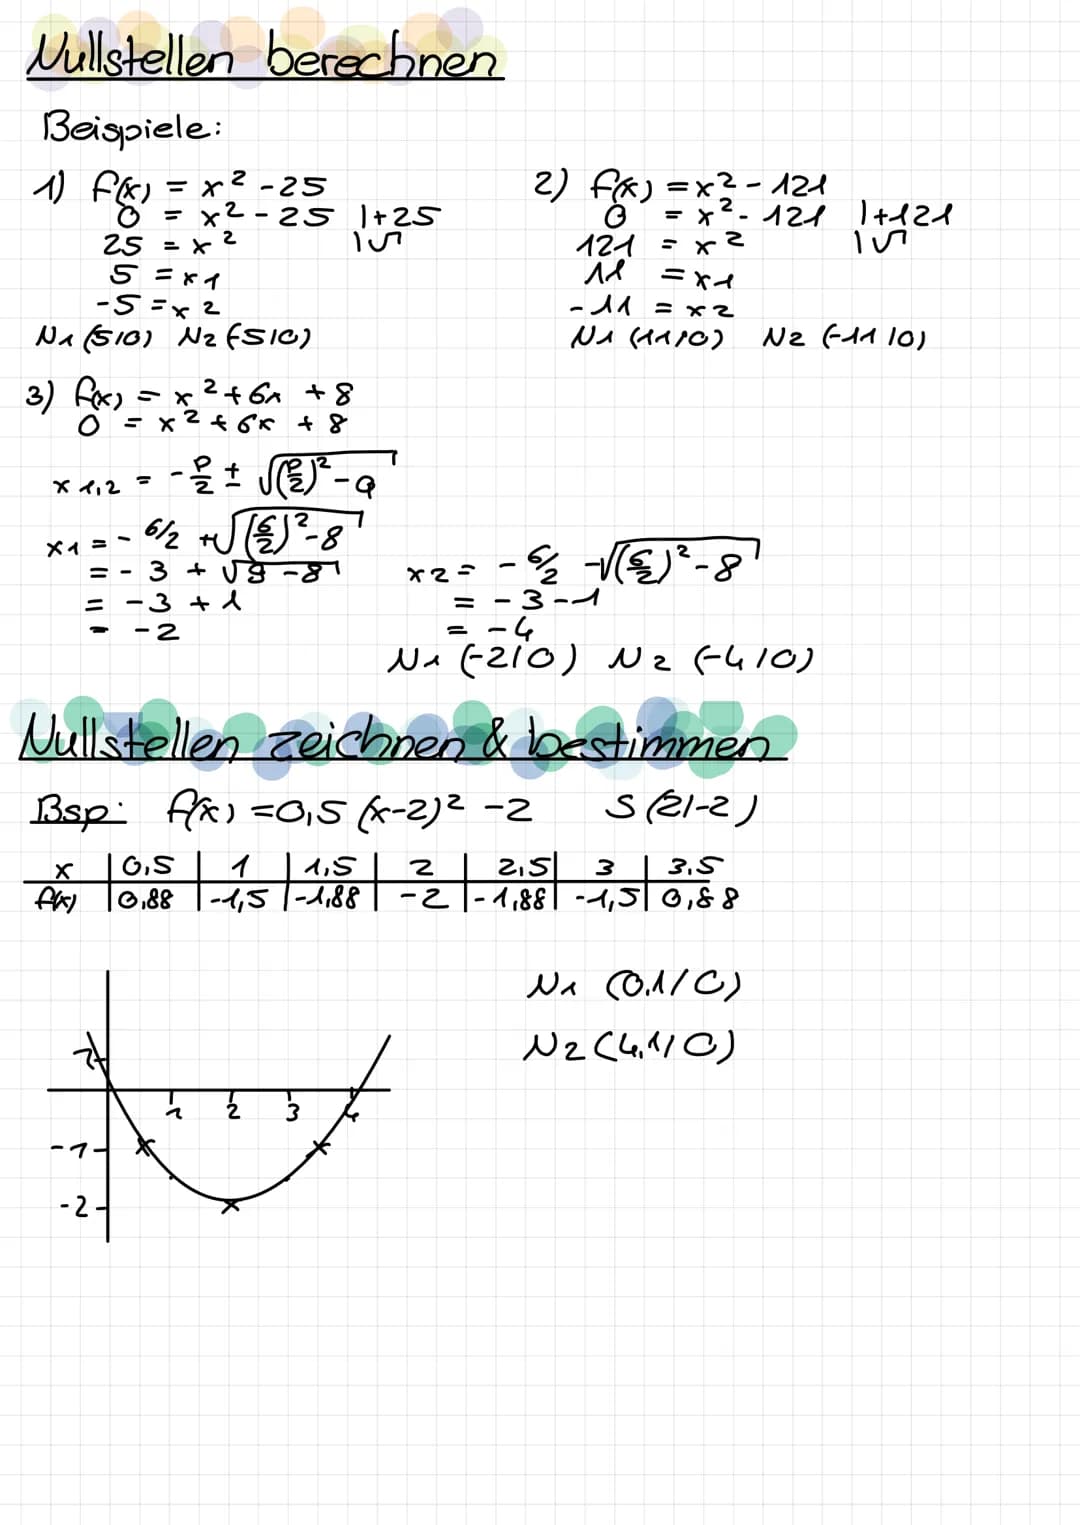 Nullstellen berechnen
Beispiele:
1) f(x) = x² - 25
0 = x² - 25 |+25
25 = x² |√
5 = x1
-5 = x2
N1 (5|0) N2 (-5|0)
2) f(x) = x² - 121
0 = x² - 121 |+121
121 = x² |√
11 = x1
-11 = x2
N1 (11|0) N2 (-11|0)
3) f(x) = x² + 6x + 8
0 = x² + 6x + 8
x1,2 = - p/2 ± √(p/2)² - q
x1 = - 6/2 + √(6/2)² - 8
= - 3 + √9 - 8
= -3 + 1
= -2
x2 = - 6/2 - √(6/2)² - 8
= -3-1
= -4
N1 (-2|0) N2 (-4|0)
Nullstellen zeichnen & bestimmen
Bsp: f(x) = 0,5 (x-2)² - 2 S (2|-2)
x | 0,5 | 1 | 1,5 | 2 | 2,5 | 3 | 3.5
f(x) | 0,88 | -1,5 | -1,88 | -2 | -1,88 | -1,5 | 0,88
N1 (0.1/0)
N2 (4,1/0)
1
1 2 3 4
-1
-2